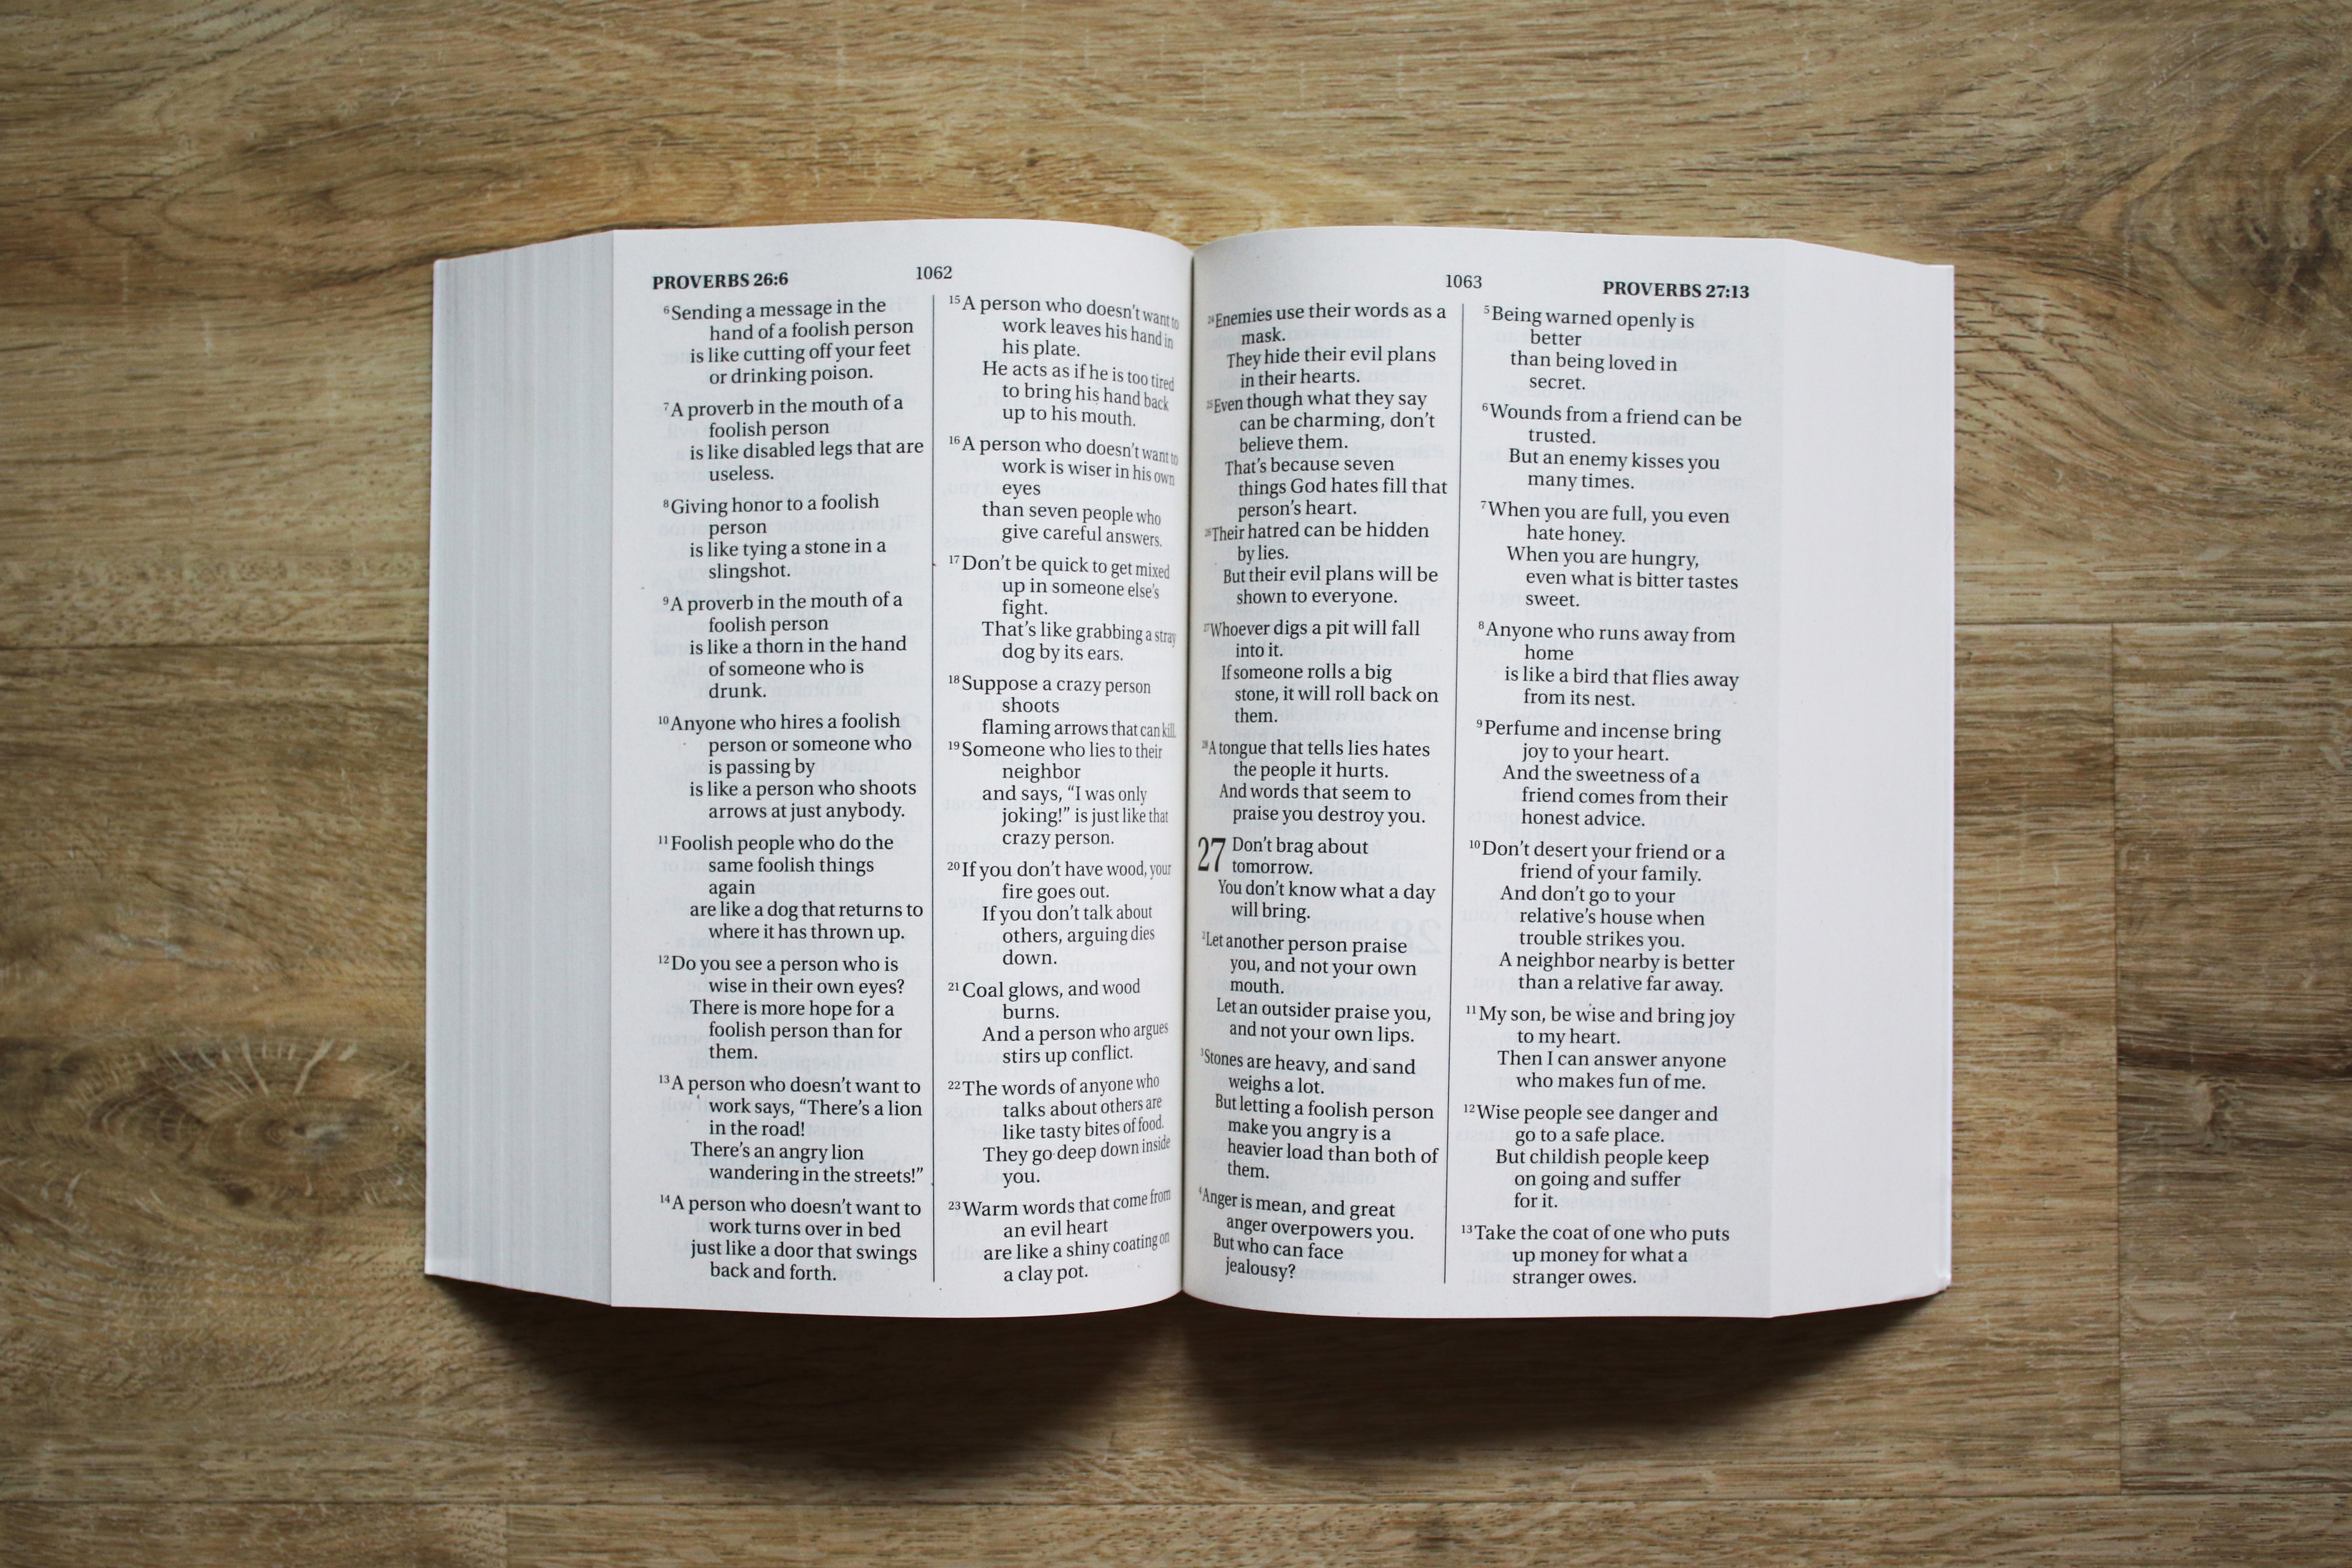 PROVERBS 26:6
1062
⁶Sending a message in the
hand of a foolish person
is like cutting off your feet
or drinking poison.
⁷A proverb in the mouth of a
foolish person
is like disabled legs that are
useless.
⁸Giving honor to a foolish
person
is like tying a stone in a
slingshot.
⁹A proverb in the mouth of a
foolish person
is like a thorn in the hand
of someone who is
drunk.
¹⁰Anyone who hires a foolish
person or someone who
is passing by
is like a person who shoots
arrows at just anybody.
¹¹Foolish people who do the
same foolish things
again
are like a dog that returns to
where it has thrown up.
¹²Do you see a person who is
wise in their own eyes?
There is more hope for a
foolish person than for
them.
¹³A person who doesn't want to
work says, “There's a lion
in the road!
There's an angry lion
wandering in the streets!”
¹⁴A person who doesn't want to
work turns over in bed
just like a door that swings
back and forth.
¹⁵A person who doesn't want to
work leaves his hand in
his plate.
He acts as if he is too tired
to bring his hand back
up to his mouth.
¹⁶A person who doesn't want to
work is wiser in his own
eyes
than seven people who
give careful answers.
¹⁷Don't be quick to get mixed
up in someone else's
fight.
That's like grabbing a stray
dog by its ears.
¹⁸Suppose a crazy person
shoots
flaming arrows that can kill.
¹⁹Someone who lies to their
neighbor
and says, “I was only
joking!” is just like that
crazy person.
²⁰If you don't have wood, your
fire goes out.
If you don't talk about
others, arguing dies
down.
²¹Coal glows, and wood
burns.
And a person who argues
stirs up conflict.
²²The words of anyone who
talks about others are
like tasty bites of food.
They go deep down inside
you.
²³Warm words that come from
an evil heart
are like a shiny coating on
a clay pot.
1063
PROVERBS 27:13
²⁴Enemies use their words as a
mask.
They hide their evil plans
in their hearts.
²⁵Even though what they say
can be charming, don't
believe them.
That's because seven
things God hates fill that
person's heart.
²⁶Their hatred can be hidden
by lies.
But their evil plans will be
shown to everyone.
²⁷Whoever digs a pit will fall
into it.
If someone rolls a big
stone, it will roll back on
them.
²⁸A tongue that tells lies hates
the people it hurts.
And words that seem to
praise you destroy you.
27 Don't brag about
tomorrow.
You don't know what a day
will bring.
²Let another person praise
you, and not your own
mouth.
Let an outsider praise you,
and not your own lips.
³Stones are heavy, and sand
weighs a lot.
But letting a foolish person
make you angry is a
heavier load than both of
them.
⁴Anger is mean, and great
anger overpowers you.
But who can face
jealousy?
⁵Being warned openly is
better
than being loved in
secret.
⁶Wounds from a friend can be
trusted.
But an enemy kisses you
many times.
⁷When you are full, you even
hate honey.
When you are hungry,
even what is bitter tastes
sweet.
⁸Anyone who runs away from
home
is like a bird that flies away
from its nest.
⁹Perfume and incense bring
joy to your heart.
And the sweetness of a
friend comes from their
honest advice.
¹⁰Don't desert your friend or a
friend of your family.
And don't go to your
relative's house when
trouble strikes you.
A neighbor nearby is better
than a relative far away.
¹¹My son, be wise and bring joy
to my heart.
Then I can answer anyone
who makes fun of me.
¹²Wise people see danger and
go to a safe place.
But childish people keep
on going and suffer
for it.
¹³Take the coat of one who puts
up money for what a
stranger owes.